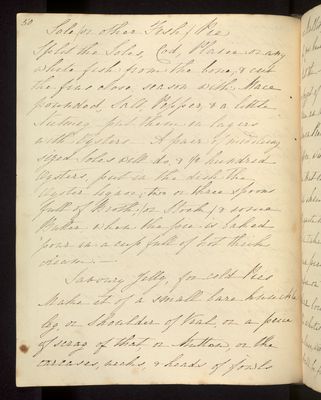 50
Sole or other Fish Pie
Split the Soles, Cod, Plaice or any
white fish from the bone, & cut
the fins close, season with Mace
pounded, Salt, Pepper, & a little
Nutmeg put them in layers
with Oysters — A pair of middling
sized Soles will do, & ½ hundred
Oysters, put in the dish the
Oyster liquor, two or three spoons
full of Broth, (or Stock) & some
Butter when the pie is baked
pour in a cup full of hot thick
cream. —
Savoury Jelly, for cold Pies
Make it of a small bare knuckle
leg, or Shoulder of Veal, or a piece
of scrag of that, or Mutton, or the
carcases, necks, & heads of fowls